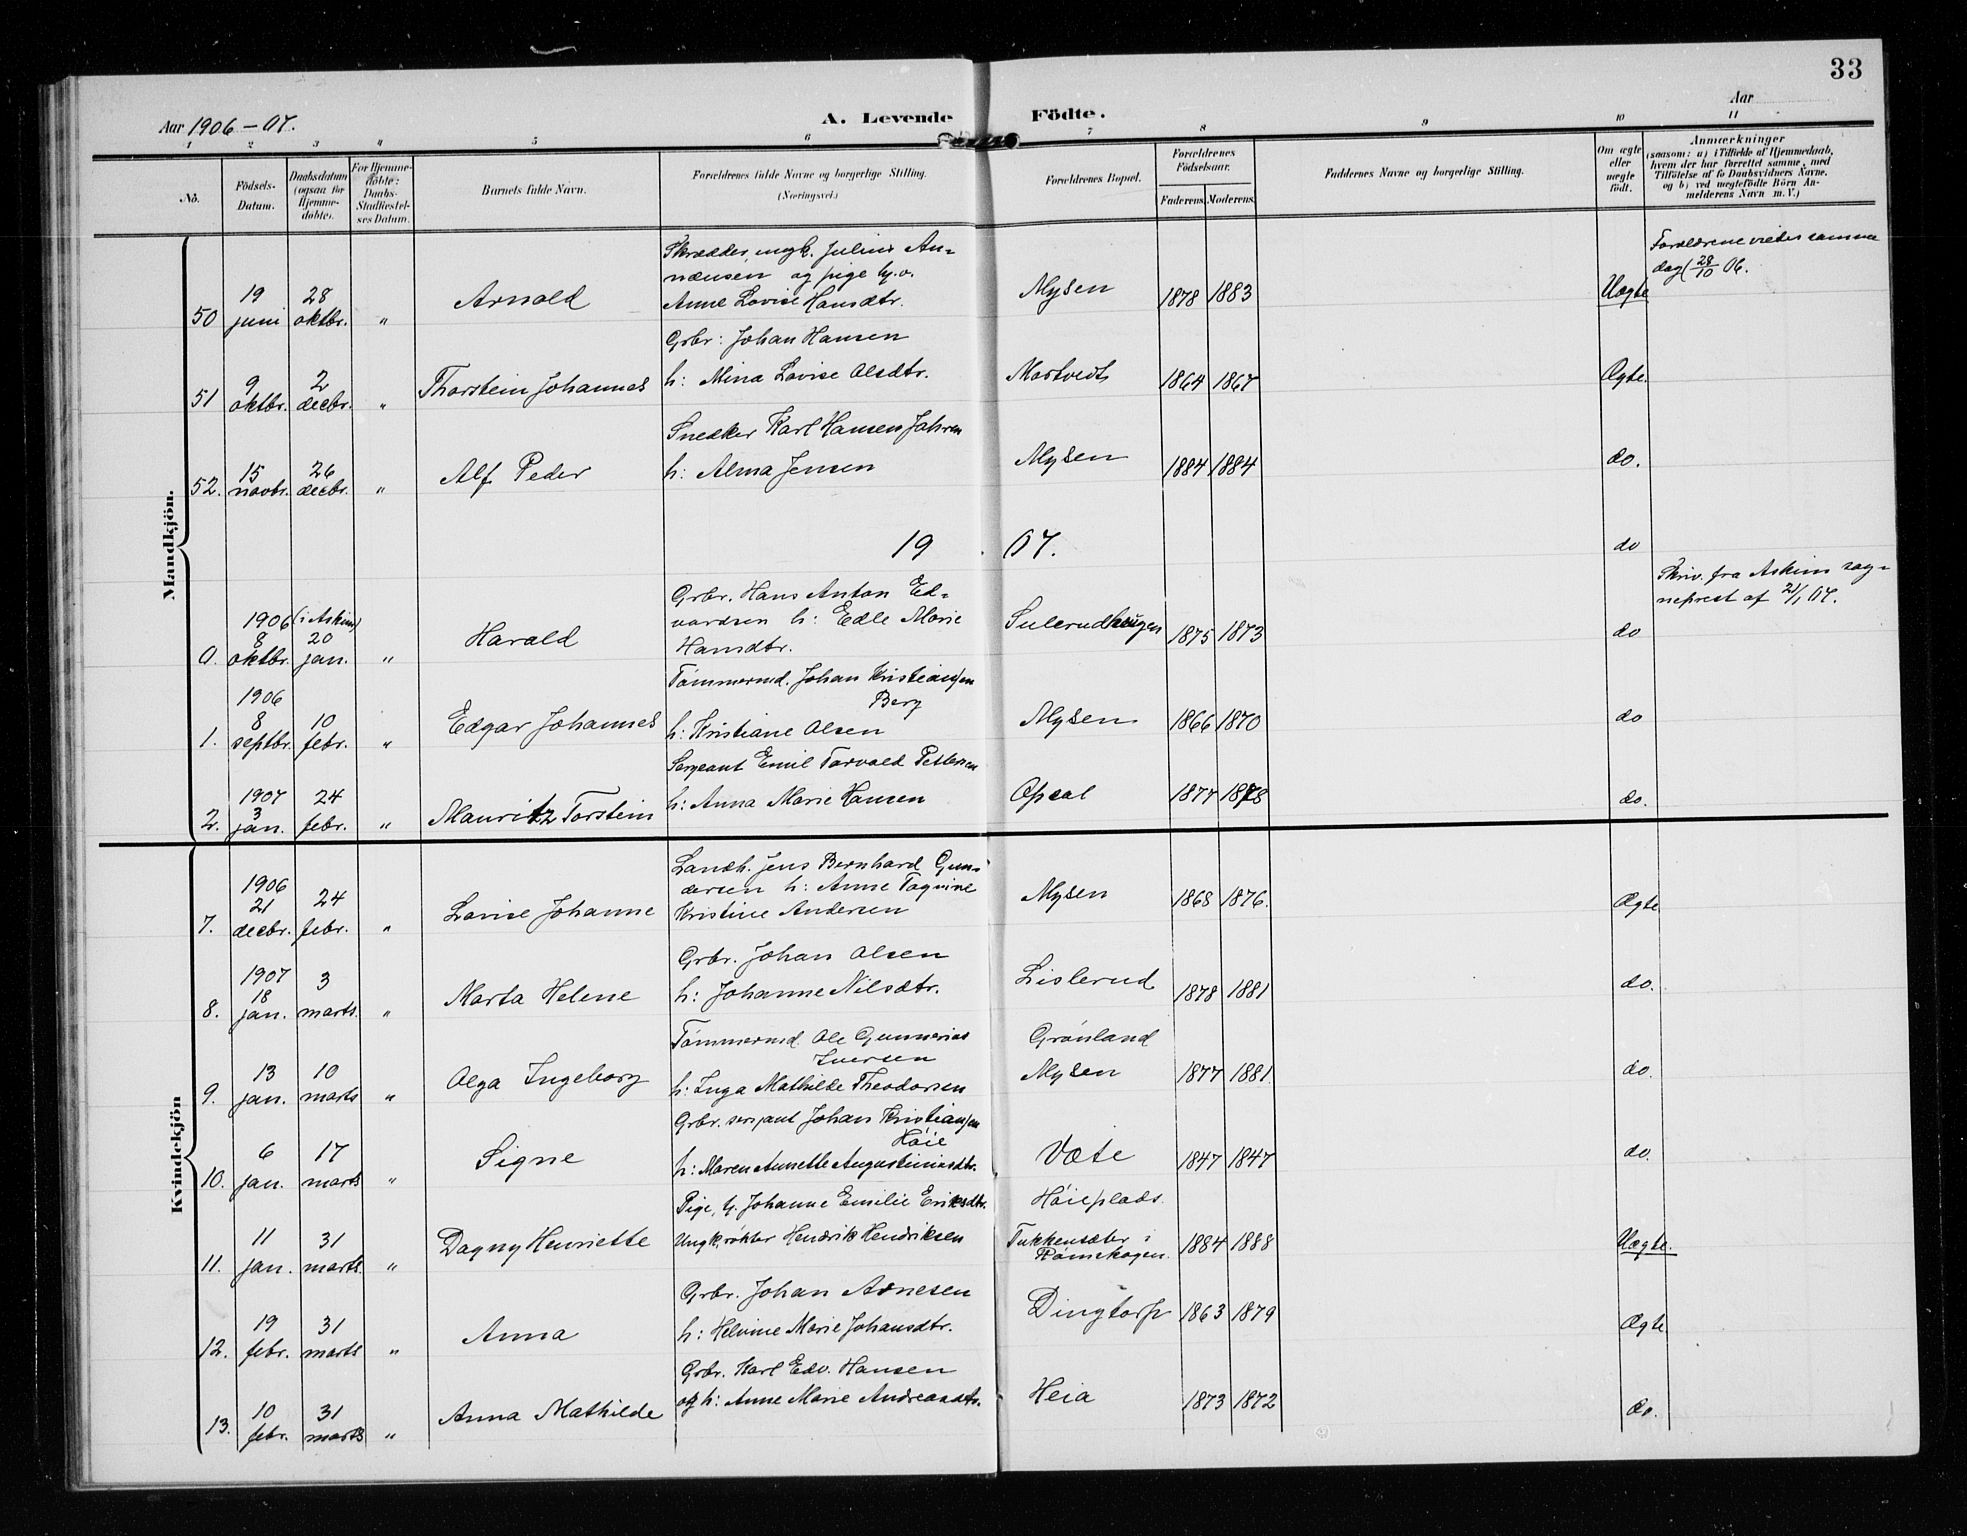 33
Aar 1906-07. A. Levende Födte. Aar
1 2 3 4 5 6 7 8 9 10 11
No. Födsels-Datum. Daabsdatum (ogsaa for Hjemme-døbte). For Hjemme-døbte: Daabs-Stadfæstel-ses Datum. Barnets fulde Navn. Forældrenes fulde Navne og borgerlige Stilling. (Næringsvei.) Forældrenes Bopæl. Forældrenes Födselsaar. Faderens. Moderens. Faddernes Navne og borgerlige Stilling. Om ægte eller uægte födt. Anmærkninger (saasom: a) i Tilfælde af Hjemmedaab, hvem der har forrettet samme, med Tilföielse af to Daabsvidners Navne, og b) ved uægtefödte Börn Anmelderens Navn m. V.)
Mandkjön.
Skrædder, ungk. Julius An-
næusen og pige hj.v.
50 19 juni 28 oktbr. " Arnold Anne Lovise Hansdtr. Mysen 1878 1883 Uægte Forældrene viedes samme dag (28/10 06.
Grbr: Johan Hansen
51 9 oktbr. 2 decbr. " Thorstein Johannes h: Mina Lovise Olsdtr. Mostvedt 1864 1867 Ægte.
Snedker Karl Hansen Jahren
52. 15 novbr. 26 decbr. " Alf Peder h: Alma Jensen Mysen 1884 1884 do.
19 07. do
Grbr. Hans Anton Ed-
vardsen h: Edle Marie
0. 1906 8 oktbr. (i Askim) 20 jan. " Harald Hansdtr. Sulerudhaugen 1875 1873 do Skriv. fra Askim sog-neprest af 21/1 07.
Tømmermd. Johan Kristiansen
Berg
1. 1906 8 septbr. 10 febr. " Edgar Johannes h: Kristiane Olsen Mysen 1866 1870 do
Sergeant Emil Torvald Pettersen
2. 1907 3 jan. 24 febr. " Mauritz Torstein h: Anna Marie Hansen Opsal 1877 1878 do.
Kvindekjön
Landh. Jens Bernhard Gun-
dersen h: Anne Taquine
7. 1906 21 decbr. 24 febr. " Lovise Johanne Kristine Andersen Mysen 1868 1876. Ægte
Grbr. Johan Olsen
8. 1907 18 jan. 3 marts. " Marta Helene h: Johanne Nilsdtr. Lislerud 1878 1881 do.
Tømmermd. Ole Gunnerius Grønland
Iversen
9. 13 jan. 10 marts " Olga Ingeborg h: Inga Mathilde Theodorsen Mysen 1877 1881 do.
Grbr. sersjant Johan Kristiansen
Høie
10. 6 jan. 17 marts " Signe h: Maren Annette Augustiniusdtr. Væte 1847 1847 do.
Pige, hj. Johanne Emilie Eriksdtr. Høieplads.
11. 11 jan. 31 marts. " Dagny Henriette Ungk, røkter Hendrik Hendriksen Tukkensæter i Rømskogen. 1884 1888 Uægte.
Grbr. Johan Arnesen
12. 19 febr. 31 marts " Anna h: Helvine Marie Johansdtr. Dingtorp 1863 1879 Ægte
Grbr. Karl Edv. Hansen
13. 10 febr. 31 marts " Anna Mathilde og h: Anne Marie Andreasdtr. Heia 1873 1872 do.